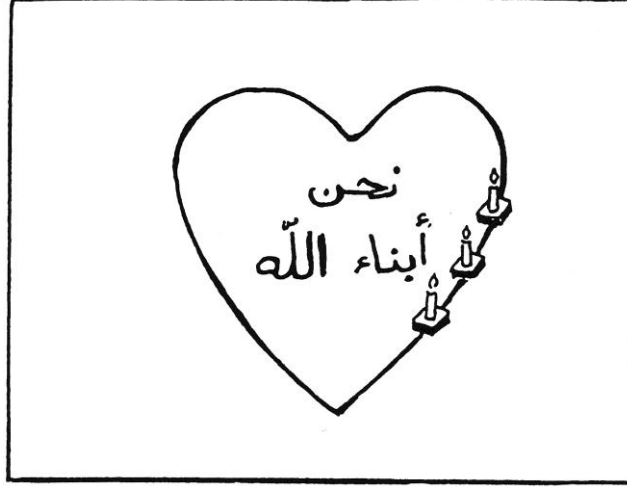 نحن
أبناء اللّه